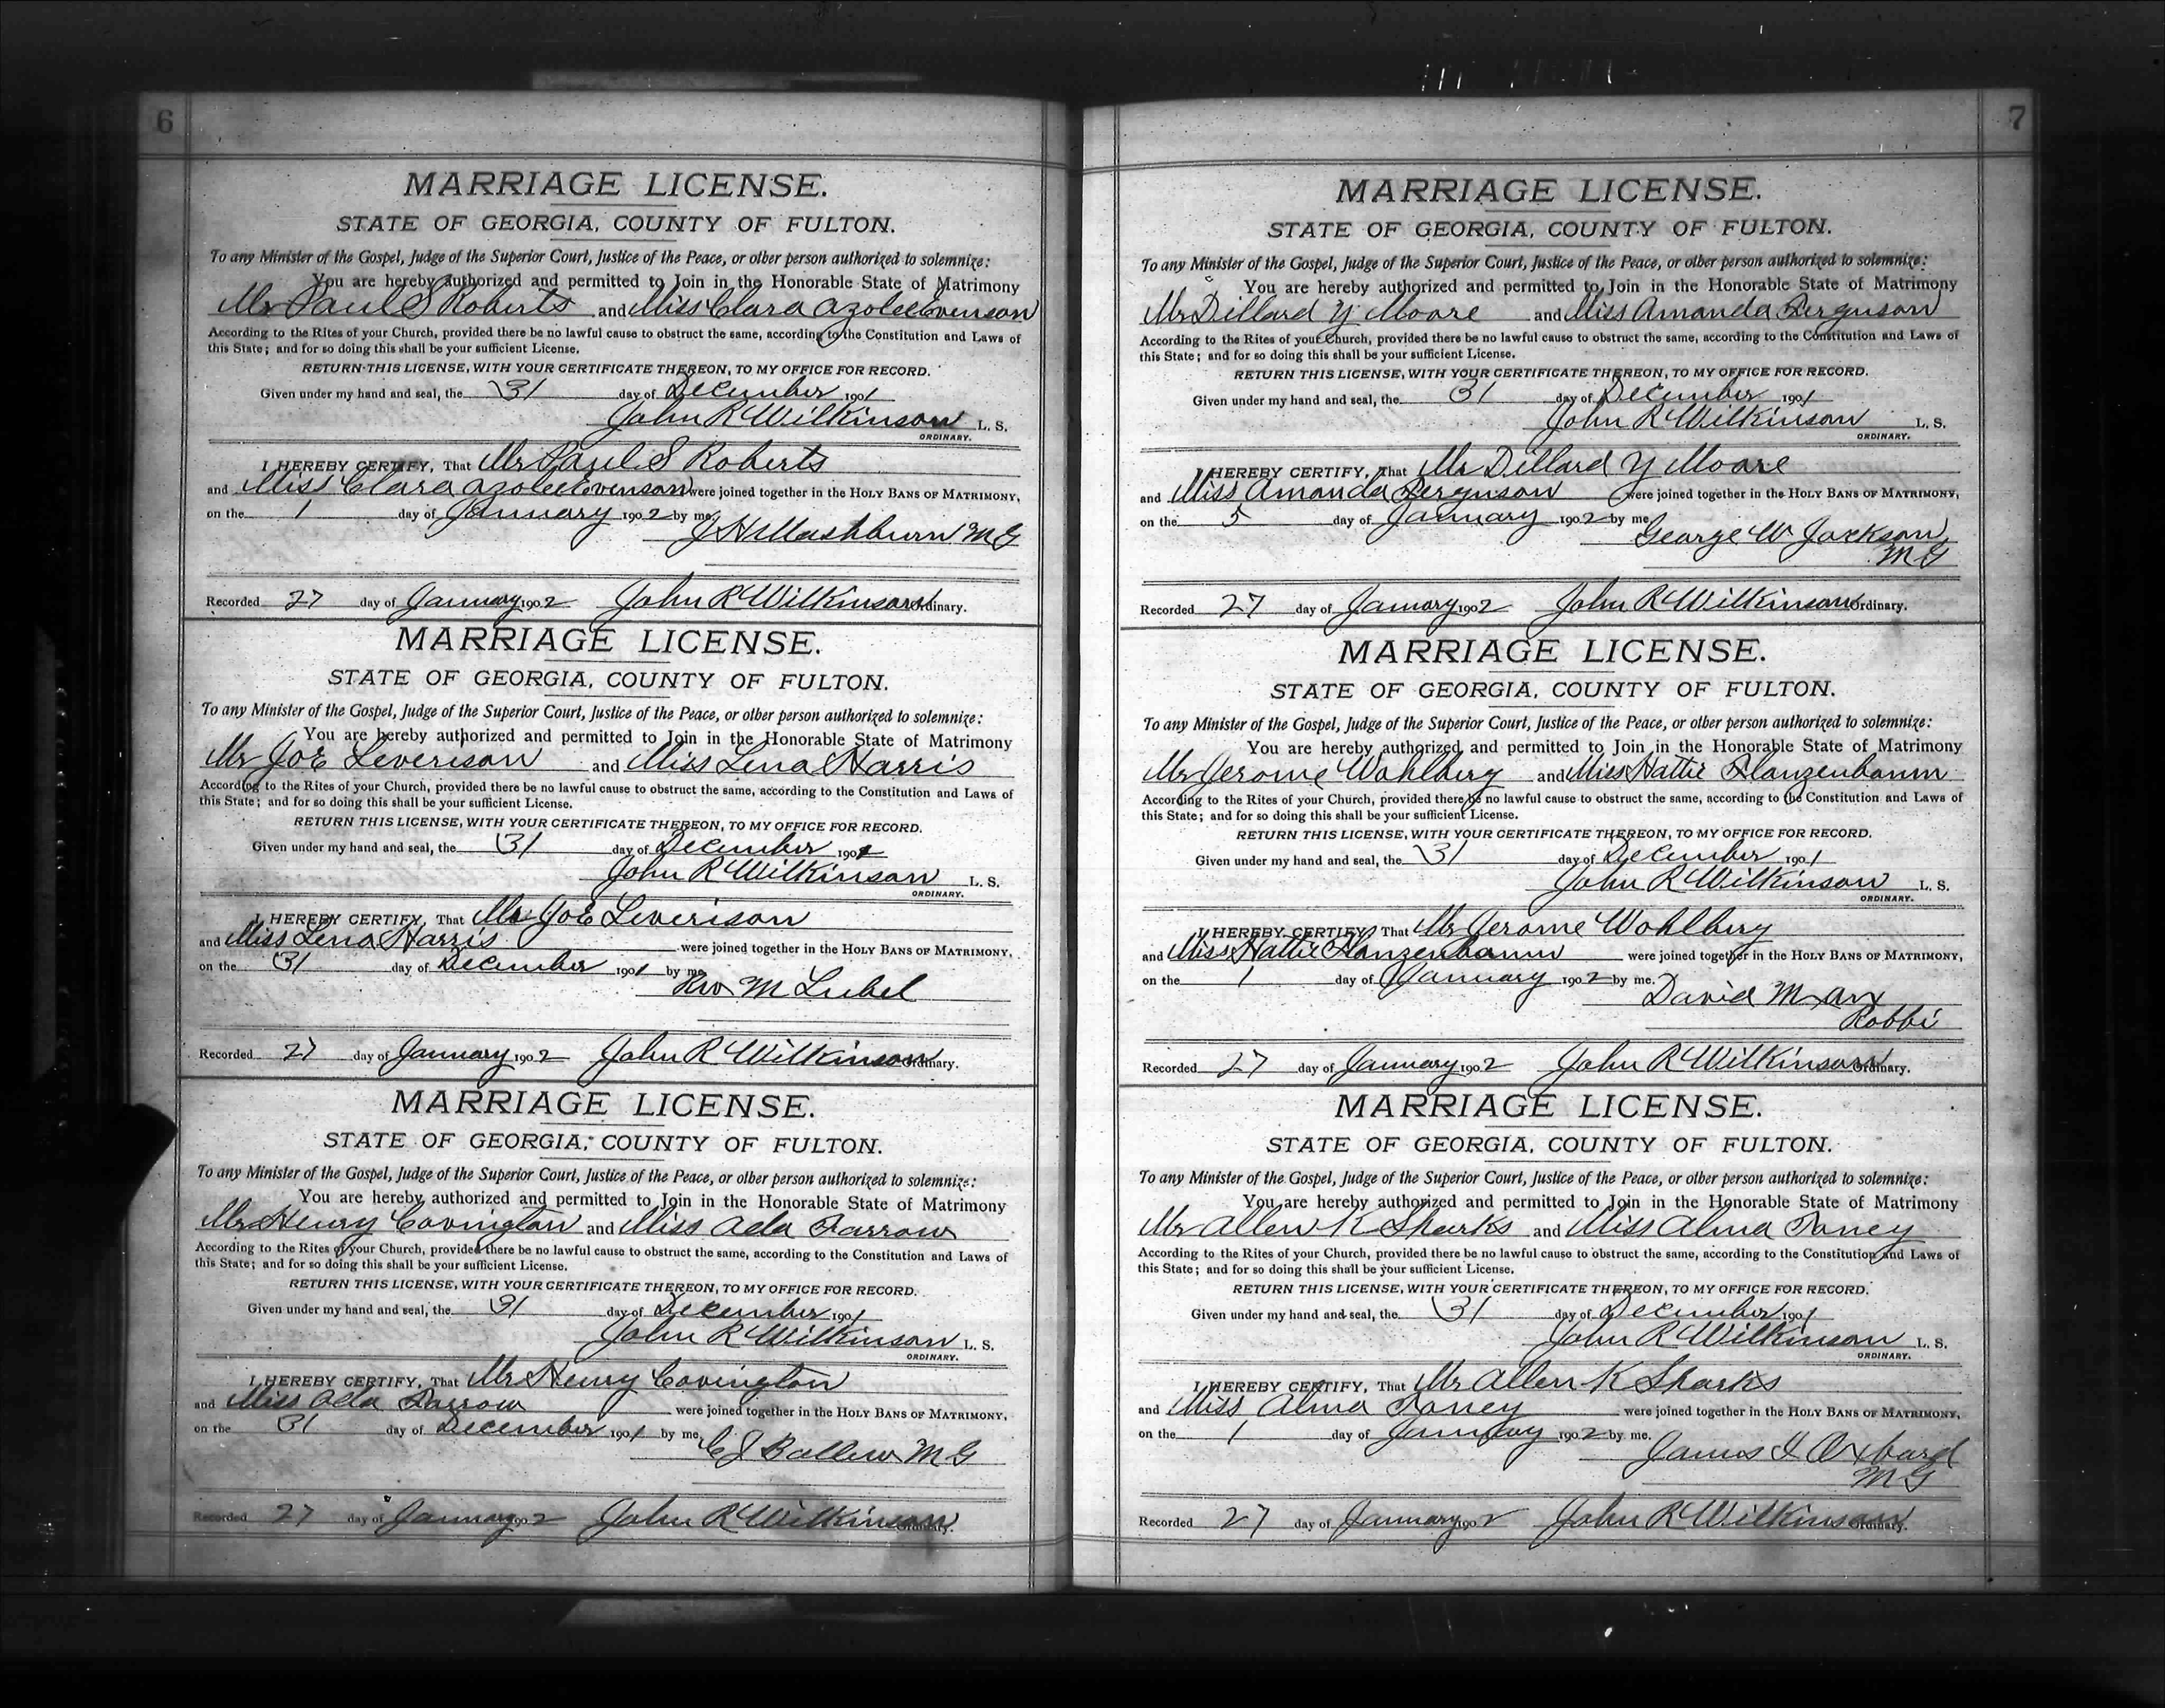 6
MARRIAGE LICENSE.
STATE OF GEORGIA, COUNTY OF FULTON.
To any Minister of the Gospel, Judge of the Superior Court, Justice of the Peace, or other person authorized to solemnize:
You are hereby authorized and permitted to Join in the Honorable State of Matrimony
Mr Paul S Roberts and Miss Clara Azolee Evenson
According to the Rites of your Church, provided there be no lawful cause to obstruct the same, according to the Constitution and Laws of
this State; and for so doing this shall be your sufficient License.
RETURN THIS LICENSE, WITH YOUR CERTIFICATE THEREON, TO MY OFFICE FOR RECORD.
Given under my hand and seal, the 31 day of December 1901
John R Wilkinson L. S.
ORDINARY.
I HEREBY CERTIFY, That Mr Paul S Roberts
and Miss Clara Azolee Evenson were joined together in the HOLY BANS OF MATRIMONY,
on the 1 day of January 1902 by me,
J H Mashburn M G
Recorded 27 day of January 1902 John R Wilkinson Ordinary.
MARRIAGE LICENSE.
STATE OF GEORGIA, COUNTY OF FULTON.
To any Minister of the Gospel, Judge of the Superior Court, Justice of the Peace, or other person authorized to solemnize:
You are hereby authorized and permitted to Join in the Honorable State of Matrimony
Mr Joe Leverison and Miss Lena Harris
According to the Rites of your Church, provided there be no lawful cause to obstruct the same, according to the Constitution and Laws of
this State; and for so doing this shall be your sufficient License.
RETURN THIS LICENSE, WITH YOUR CERTIFICATE THEREON, TO MY OFFICE FOR RECORD.
Given under my hand and seal, the 31 day of December 1901
John R Wilkinson L. S.
ORDINARY.
I HEREBY CERTIFY, That Mr Joe Leverison
and Miss Lena Harris were joined together in the HOLY BANS OF MATRIMONY,
on the 31 day of December 1901 by me
Rev M Lubel
Recorded 27 day of January 1902 John R Wilkinson Ordinary.
MARRIAGE LICENSE.
STATE OF GEORGIA, COUNTY OF FULTON.
To any Minister of the Gospel, Judge of the Superior Court, Justice of the Peace, or other person authorized to solemnize:
You are hereby authorized and permitted to Join in the Honorable State of Matrimony
Mr Henry Covington and Miss Ada Farrow
According to the Rites of your Church, provided there be no lawful cause to obstruct the same, according to the Constitution and Laws of
this State; and for so doing this shall be your sufficient License.
RETURN THIS LICENSE, WITH YOUR CERTIFICATE THEREON, TO MY OFFICE FOR RECORD.
Given under my hand and seal, the 31 day of December 1901
John R Wilkinson L. S.
ORDINARY.
I HEREBY CERTIFY, That Mr Henry Covington
and Miss Ada Farrow were joined together in the HOLY BANS OF MATRIMONY,
on the 31 day of December 1901 by me,
C J Ballew M G
Recorded 27 day of January 1902 John R Wilkinson Ordinary.
7
MARRIAGE LICENSE.
STATE OF GEORGIA, COUNTY OF FULTON.
To any Minister of the Gospel, Judge of the Superior Court, Justice of the Peace, or other person authorized to solemnize:
You are hereby authorized and permitted to Join in the Honorable State of Matrimony
Mr Dillard Y Moore and Miss Amanda Ferguson
According to the Rites of your Church, provided there be no lawful cause to obstruct the same, according to the Constitution and Laws of
this State; and for so doing this shall be your sufficient License.
RETURN THIS LICENSE, WITH YOUR CERTIFICATE THEREON, TO MY OFFICE FOR RECORD.
Given under my hand and seal, the 31 day of December 1901
John R Wilkinson L. S.
ORDINARY.
I HEREBY CERTIFY, That Mr Dillard Y Moore
and Miss Amanda Ferguson were joined together in the HOLY BANS OF MATRIMONY,
on the 5 day of January 1902 by me
George W Jackson
M G
Recorded 27 day of January 1902 John R Wilkinson Ordinary.
MARRIAGE LICENSE.
STATE OF GEORGIA, COUNTY OF FULTON.
To any Minister of the Gospel, Judge of the Superior Court, Justice of the Peace, or other person authorized to solemnize:
You are hereby authorized and permitted to Join in the Honorable State of Matrimony
Mr Jerome Wohlberg and Miss Hattie Flanzenbaum
According to the Rites of your Church, provided there be no lawful cause to obstruct the same, according to the Constitution and Laws of
this State; and for so doing this shall be your sufficient License.
RETURN THIS LICENSE, WITH YOUR CERTIFICATE THEREON, TO MY OFFICE FOR RECORD.
Given under my hand and seal, the 31 day of December 1901
John R Wilkinson L. S.
ORDINARY.
I HEREBY CERTIFY, That Mr Jerome Wohlberg
and Miss Hattie Flanzenbaum were joined together in the HOLY BANS OF MATRIMONY,
on the 1 day of January 1902 by me.
David Marx
Rabbi
Recorded 27 day of January 1902 John R Wilkinson Ordinary.
MARRIAGE LICENSE.
STATE OF GEORGIA, COUNTY OF FULTON.
To any Minister of the Gospel, Judge of the Superior Court, Justice of the Peace, or other person authorized to solemnize:
You are hereby authorized and permitted to Join in the Honorable State of Matrimony
Mr Allen K Sharks and Miss Alma Haney
According to the Rites of your Church, provided there be no lawful cause to obstruct the same, according to the Constitution and Laws of
this State; and for so doing this shall be your sufficient License.
RETURN THIS LICENSE, WITH YOUR CERTIFICATE THEREON, TO MY OFFICE FOR RECORD.
Given under my hand and seal, the 31 day of December 1901
John R Wilkinson L. S.
ORDINARY.
I HEREBY CERTIFY, That Mr Allen K Sharks
and Miss Alma Haney were joined together in the HOLY BANS OF MATRIMONY,
on the 1 day of January 1902 by me.
James I Oxburd
M G
Recorded 27 day of January 1902 John R Wilkinson Ordinary.